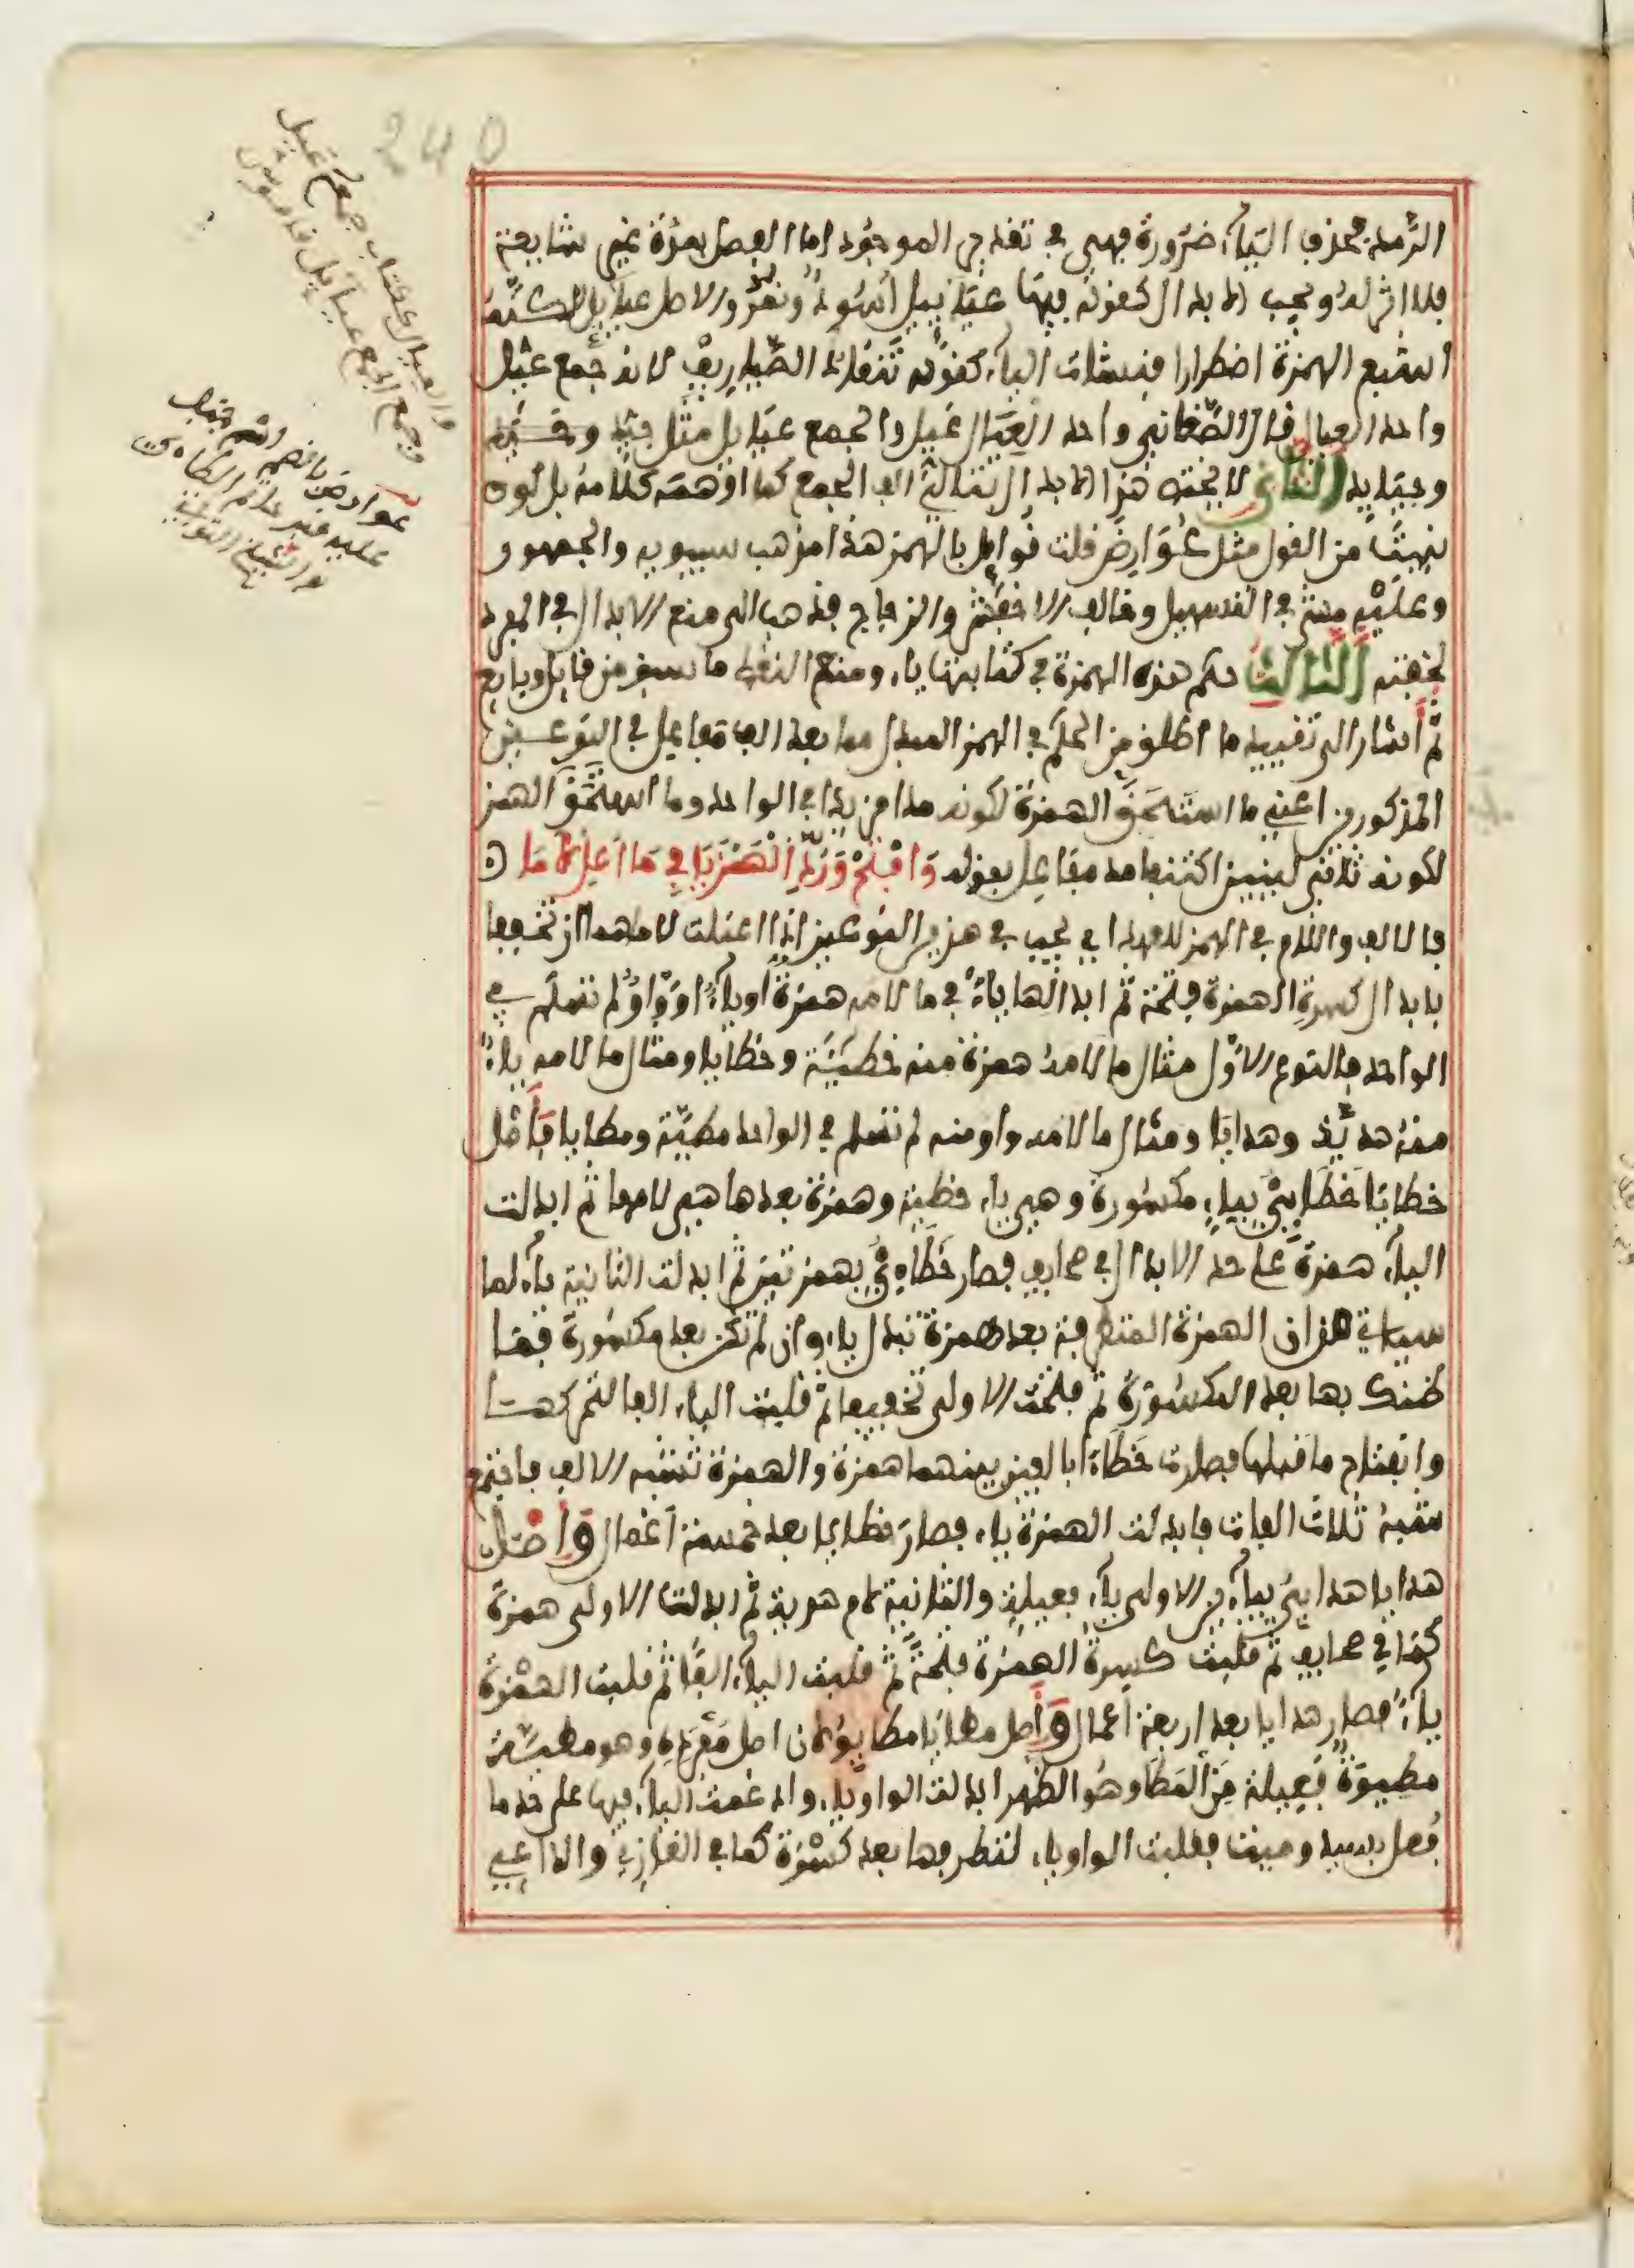 الرمد فحذف الياء ضرورة فهي في تقدير الموجود اما الفصل بمدة غير شايعة
فلا اثر له ويجب الابدال كقوله فيها عيائيل اسود ونمر والاصل عيايل لاكنه
اشبع الهمزة اضطرارا فنشات الياء كقوله تنقاد الصياريف لانه جمع عيل
واحد العيال قال الصغاني واحد العيال عيل والجمع عيايل مثل جيد
وجيايد الثاني لا يختص هذا الابدال بتالي الف الجمع كما اوهمه كلامه بل لو
بنيت من القول مثل عوارض قلت قوايل بالهمز هذا مذهب سيبويه والجمهور
وعليه مشى في التسهيل وخالف الاخفش والزجاج فذهب الى منع الابدال في المفرد
لخفته الثالث حكم هذه الهمزة في كتابتها ياء ومنع النقط ما سبق من قايل وبايع
ثم اشار الى تقييد ما اطلق من الحكم في الهمز المبدل مما بعد الف مفاعل في النوعين
المذكورين اعني ما استحق الهمزة لكونه مدا مزيدا في الواحد وما استحق الهمز
لكونه ثاني لينين اكتنفا مد مفاعل بقوله وافتح ورد الهمز يا في ما اعل لاما
فالالف واللام في الهمز للعهد اي يجب في هذين النوعين اذا اعتلت لامهما ان تخففا
بابدال كسرة الهمزة فتحة ثم ابدالها ياء في ما لامه همزة او ياء او واو لم تسلم في
الواحد فالنوع الاول مثال ما لامه همزة منه خطيئة وخطايا ومثال ما لامه ياء
منه هدية وهدايا ومثال ما لامه واو منه لم تسلم في الواحد مطية ومطايا فاصل
خطايا خطايئ بياء مكسورة وهي ياء خطية وهمزة بعدها هي لامها ثم ابدلت
الياء همزة على حد الابدال في صحايف فصار خطائئ بهمزتين ثم ابدلت الثانية ياء لما
سياتي من ان الهمزة المتطرفة بعد همزة تبدل ياء وان لم تكن بعد مكسورة فما
ظنك بها بعد المكسورة ثم فتحت الاولى تخفيفا ثم قلبت الياء الفا لتحركها
وانفتاح ما قبلها فصارت خطاءا بالفين بينهما همزة والهمزة تشبه الالف فاجتمع
شبه ثلاث الفات فابدلت الهمزة ياء فصار خطايا بعد خمسة اعمال واصل
هدايا هدايي بياءين الاولى ياء فعيلة والثانية لام هدية ثم ابدلت الاولى همزة
كما في صحايف ثم قلبت كسرة الهمزة فتحة ثم قلبت الياء الفا ثم قلبت الهمزة
ياء فصار هدايا بعد اربعة اعمال واصل مطايا مطايو لان اصل مفرده وهو مطية
مطيوة فعيلة من المطا وهو الظهر ابدلت الواو ياء وادغمت الياء فيها على حد ما
فعل بسيد وميت فقلبت الواو ياء لتطرفها بعد كسرة كما في الغازي والداعي
والعيال ككتاب جمع عيل
وجمع الجمع عيايل